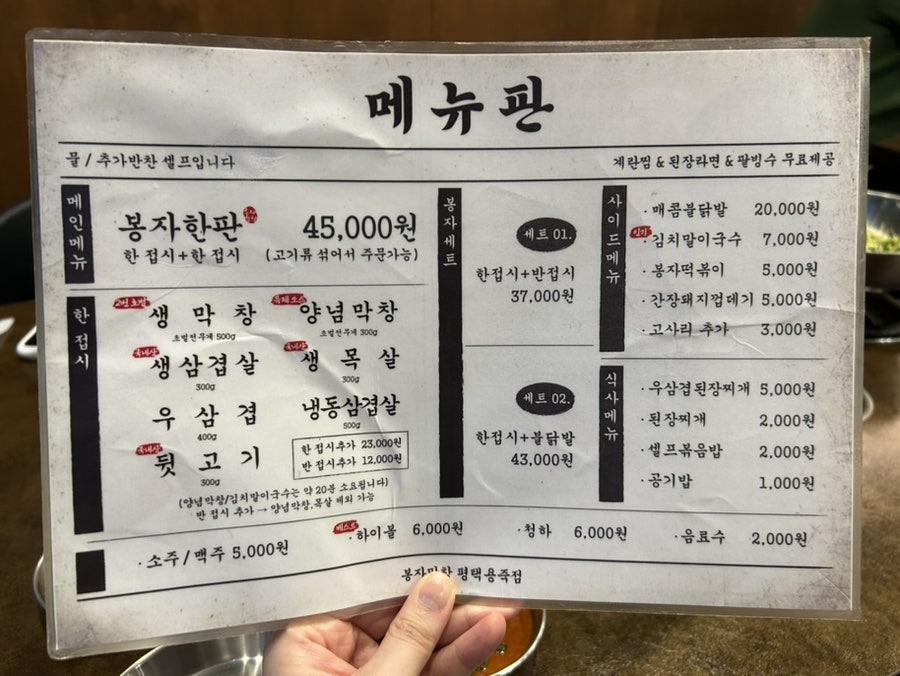 메뉴판
물 / 추가반찬 셀프입니다
계란찜 & 된장라면 & 팥빙수 무료제공
메인메뉴
봉자한판 45,000원
한 접시+한 접시 (고기류 섞어서 주문가능)
한접시
2번 초벌 생막창
초벌전무게 500g
특제 소스 양념막창
초벌전무게 300g
국내산 생삼겹살
300g
국내산 생목살
300g
우삼겹
400g
냉동삼겹살
500g
국내산 뒷고기
300g
한 접시추가 23,000원
반 접시추가 12,000원
(양념막창/김치말이국수는 약 20분 소요됩니다)
반 접시 추가 → 양념막창,목살 제외 가능
봉자세트
세트 01.
한접시+반접시
37,000원
세트 02.
한접시+불닭발
43,000원
사이드메뉴
· 매콤불닭발 20,000원
인기 · 김치말이국수 7,000원
· 봉자떡볶이 5,000원
· 간장돼지껍데기 5,000원
· 고사리 추가 3,000원
식사메뉴
· 우삼겹된장찌개 5,000원
· 된장찌개 2,000원
· 셀프볶음밥 2,000원
· 공기밥 1,000원
· 소주/맥주 5,000원
베스트 · 하이볼 6,000원
· 청하 6,000원
· 음료수 2,000원
봉자막창 평택용죽점